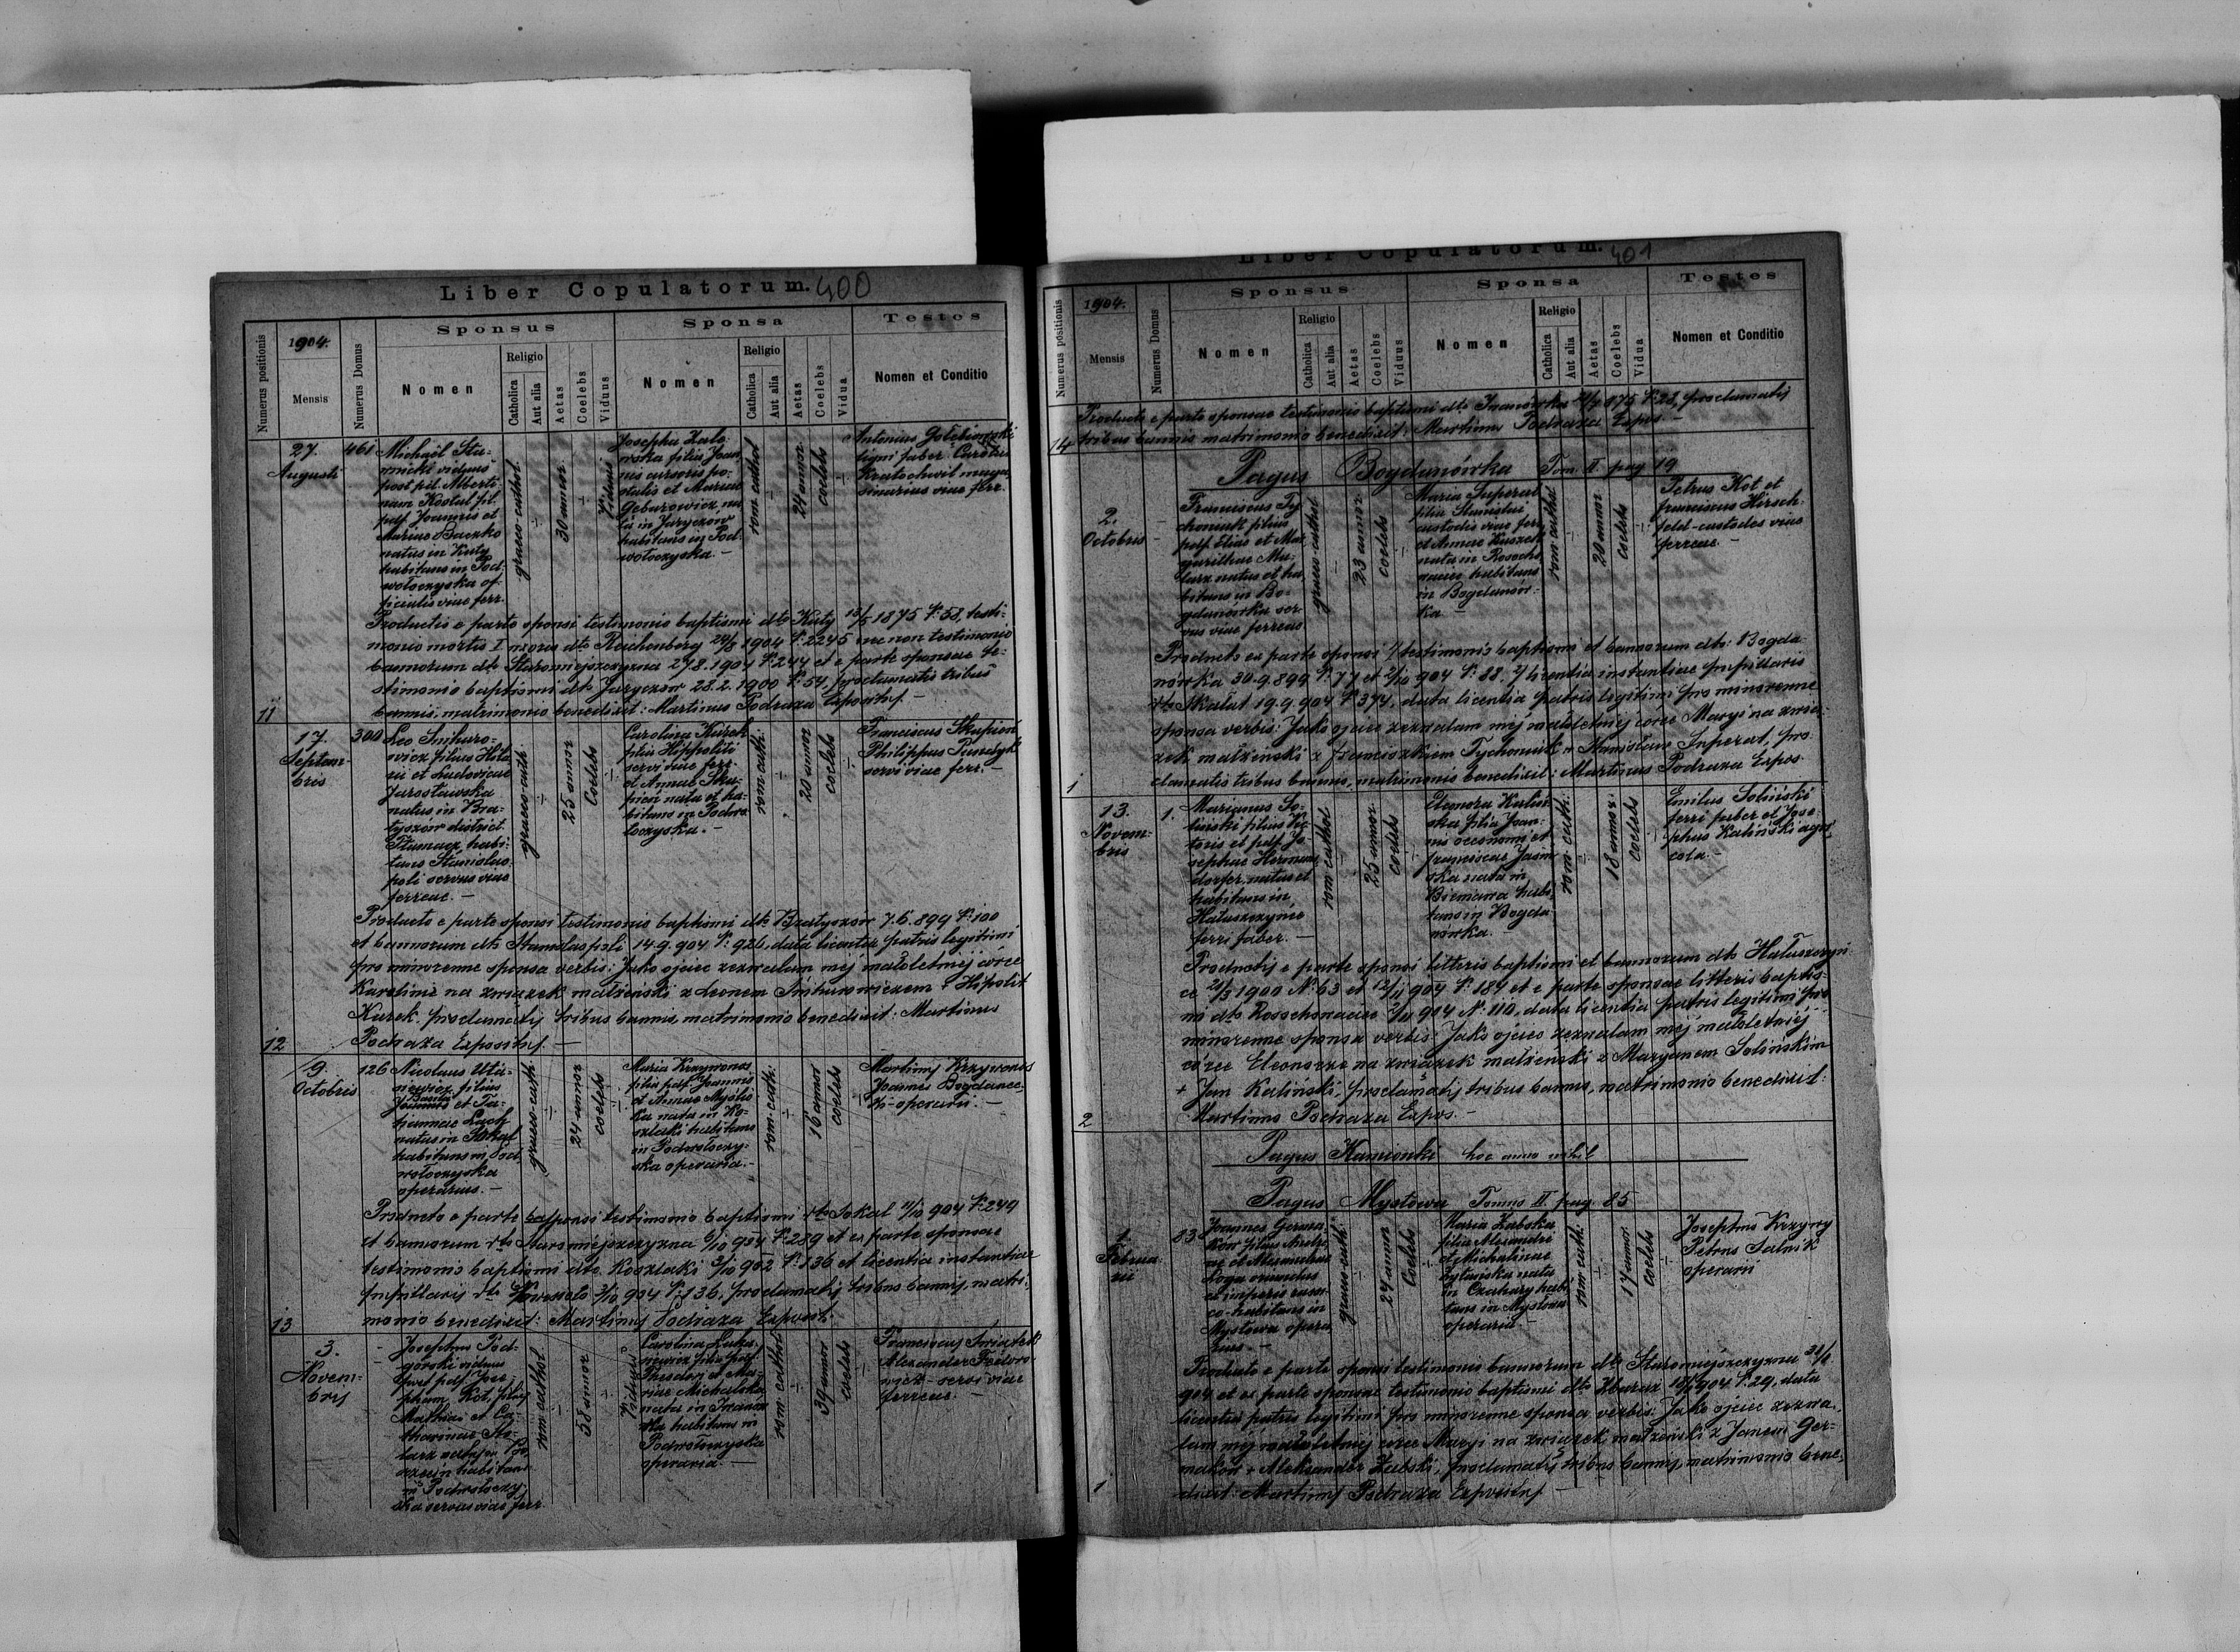 Liber Copulatorum. 400
Numerus positionis
1904.
Mensis
Numerus Domus
Sponsus
Nomen
Religio
Catholica
Aut alia
Aetas
Coelebs
Viduus
Sponsa
Nomen
Religio
Catholica
Aut alia
Aetas
Coelebs
Vidua
Testes
Nomen et Conditio
11
27.
Augusti
461
Michaël
viduus
post pdf. Alberti-
nam fil.
pdf. Joannis et
Mariae Baczko
natus in Kuty
habitans in Pod-
wołoczyska of-
ficialis viae ferr.
graeco-cathol
30 annor
Viduus
Josepha Zale-
wska filia Joan-
nis cursoris po-
stalis et Mariae
Gebarowicz na-
ta in Jaryczów
habitans in Pod-
wołoczyska. –
rom cathol
24 annor
coelebs
Antonius Gołębiowski
ligni faber Carolus
Kratochwil maga-
sinarius viae ferr.
Productis e parte sponsi testimonio baptismi dto Kuty 13/5 1875 N: 58, testi-
monio mortis I uxoris dto Reichenberg 24/8 1904 N: 2245 nec non testimonio
bannorum dto Staromiejszczyzna 27.8.1904 N: 244 et e parte sponsae te-
stimonio baptismi dto Jaryczów 28.2.1900 N: 54, proclamatis tribus
bannis, matrimonio benedixit: Martinus Podraza Expositus. –
12
17.
Septem-
bris
300
Leo Snihuro-
wicz filius Hila-
rii et Ludovicae
Jarosławska
natus in Bra-
tyszów district.
Tłumacz, habi-
tans Stanislao-
poli servus viae
ferreae. –
graeco-cath
25 annor
Coelebs
Carolina Kurek
filia Hippoliti
servi viae ferr.
et Annae Sku-
pień nata et ha-
bitans in Podwo-
łoczyska. –
rom cath.
20 annor
coelebs
Franciscus Skupień
Philippus
servi viae ferr. –
Producto e parte sponsi testimonio baptismi dto Bratyszów 7.6.899 N: 100
et bannorum dto Stanislaopoli 14.9.904 N: 926, data licentia patris legitimi
pro minorenne sponsa verbis: Jako ojciec zezwalam mej małoletniej córce
Karolinie na związek małżeński z Leonem Snihurowiczem + Hipolit
Kurek, proclamatis tribus bannis, matrimonio benedixit: Martinus
Podraza Expositus –
13
9.
Octobris
126
Nicolaus
filius
Basilii
Joannis et Ta-
tiannae Lach
natus in Sokal
habitans in Pod-
wołoczyska
operarius. –
graeco-cath
24 annor
coelebs
Maria Krzywonos
filia pdf Joannis
et Annae Myśli-
cka nata in Ko-
szlaki habitans
in Podwołoczy-
ska operaria. –
rom-cath.
16 annor
coelebs
Martinus Krzywonos
Joannes
operarii. –
Producto e parte sponsi testimonio baptismi dto Sokal 11/10 904 N: 249
et bannorum dto Staromiejszczyzna 6/10 904 N: 289 et ex parte sponsae
testimonio baptismi dto Koszlaki 3/10 902 N: 136 et licentia instantiae
pupillaris dto Nowesioło 3/10 904 N: 136, proclamatis tribus bannis, matri-
monio benedixit: Martinus Podraza Exposit.
3.
Novem-
bris
Josephus Pod-
górski viduus
post pdf Jose-
pham Kot, filius
Mathiae et Ca-
tharinae Sto-
larz natus in
habitans
in Podwołoczy-
ska servus viae ferr
rom cathol
58 annor
Viduus
Carolina Łuka-
siewicz filia pdf.
Theodori et Ma-
riae Michalska
nata in Iwanów-
ka habitans in
Podwołoczyska
operaria. –
rom-cathol
39 annor
coelebs
Franciscus Świątek
Alexander Fedoro-
wicz – servi viae
ferreae. –
Liber Copulatorum. 401
Numerus positionis
1904.
Mensis
Numerus Domus
Sponsus
Nomen
Religio
Catholica
Aut alia
Aetas
Coelebs
Viduus
Sponsa
Nomen
Religio
Catholica
Aut alia
Aetas
Coelebs
Vidua
Testes
Nomen et Conditio
Producto e parte sponsae testimonio baptismi dto Iwanówka 875 N: 23, proclamatis
14
tribus bannis matrimonio benedixit: Martinus Podraza Expos –
Pagus Bogdanówka Tom. II pag 19
1
2.
Octobris
Franciscus Ty-
choniuk filius
pdf Eliae et Mar-
garithae Mu-
larz natus et ha-
bitans in Bo-
gdanówka ser-
vus viae ferreae
graeco-cathol
23 annor
coelebs
Maria Superat
filia Stanislai
custodis viae ferr
et Annae
nata in Rosocho-
waciec habitans
in Bogdanów-
ka –
rom cathol
20 annor
coelebs
Petrus Kot et
Franciscus Hirsch-
feld – custodes viae
ferreae. –
Productis ex parte sponsi 1/ testimoniis baptismi et bannorum dto: Bogda-
nówka 30.9.899 N: 71 et 2/10 904 N: 88. 2/ licentia instantiae pupillaris
dto Skałat 19.9.904 N: 344, data licentia patris legitimi pro minorenne
sponsa verbis: Jako ojciec zezwalam mej małoletniej córce Maryi na zwią-
zek małżeński z Franciszkiem Tychoniuk + Stanisław Superat, pro-
clamatis tribus bannis, matrimonio benedixit: Martinus Podraza Expos.
2
13.
Novem-
bris
1.
Marianus So-
liński filius Vic-
toris et pdf. Jo-
sephae Herman-
dorfer natus et
habitans in
Hałuszczyńce
ferri faber. –
rom cathol
25 annor
coelebs
Eleonora Kaliń-
ska filia Joan-
nis oeconomi et
Franciscae Jasiń-
ska nata in
habi-
tans in Bogda-
nówka. –
rom-cath.
18 annor.
coelebs
Emilus Soliński
ferri faber et Jose-
phus Kaliński agri-
cola. –
Productis e parte sponsi litteris baptismi et bannorum dto Hałuszczyń-
ce 21/3 1900 N: 63 et 12/11 904 N: 184 et e parte sponsae litteris baptis-
mi dto Rosochowaciec 904 N: 110, data licentia patris legitimi pro
minorenne sponsa verbis: Jako ojciec zezwalam mej małoletniej
córce Eleonorze na związek małżeński z Maryanem Solińskim
+ Jan Kaliński, proclamatis tribus bannis, matrimonio benedixit:
Martinus Podraza Expos. –
Pagus Kamionki hoc anno nihil
Pagus Mysłowa Tomus II pag. 85
1
1.
Februa-
rii
83
Joannes Germa-
ków filius Andre-
ae et Alexandrae
oriundus
ex imperio russi-
co habitans in
Mysłowa opera-
rius. –
graeco-cath.
24 annor
Coelebs
Maria Zubska
filia Alexandri
et Michalinae
nata
in habi-
tans in Mysłowa
operaria –
rom-cath.
17 annor
coelebs
Josephus Krzywy
Petrus Salnik
operarii
Producto e parte sponsi testimonio bannorum dto Staromiejszczyzna 31/1
904 et ex parte sponsae testimonio baptismi dto Zbaraż 904 N: 29, data
licentia patris legitimi pro minorenne sponsa verbis: Jako ojciec zezwa-
lam mej małoletniej córce Maryi na związek małżeński z Janem Ger-
maków + Aleksander Zubski, proclamatis tribus bannis, matrimonio bene-
dixit: Martinus Podraza Expositus –